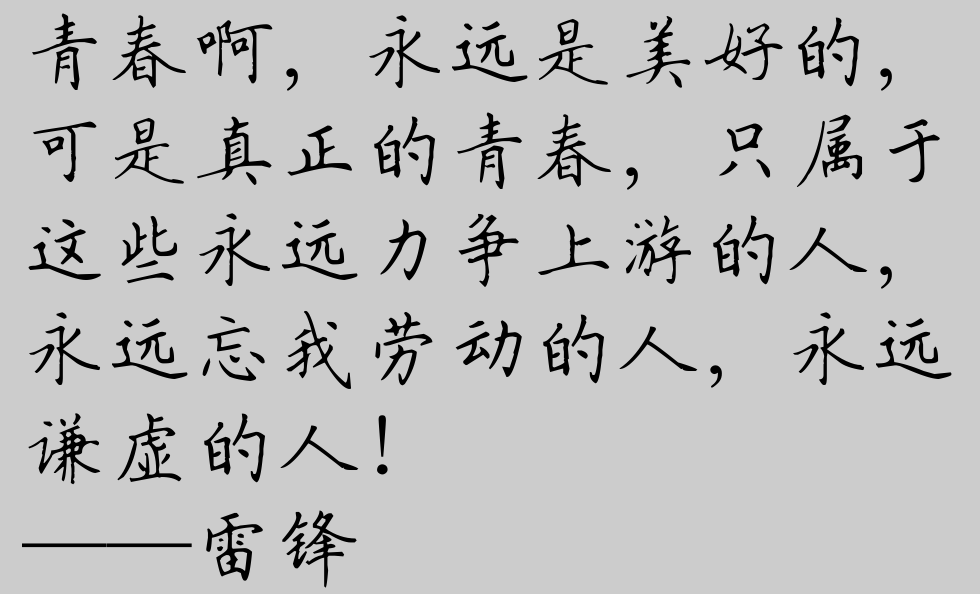 青春啊，永远是美好的，
可是真正的青春，只属于
这些永远力争上游的人，
永远忘我劳动的人，永远
谦虚的人！
——雷锋